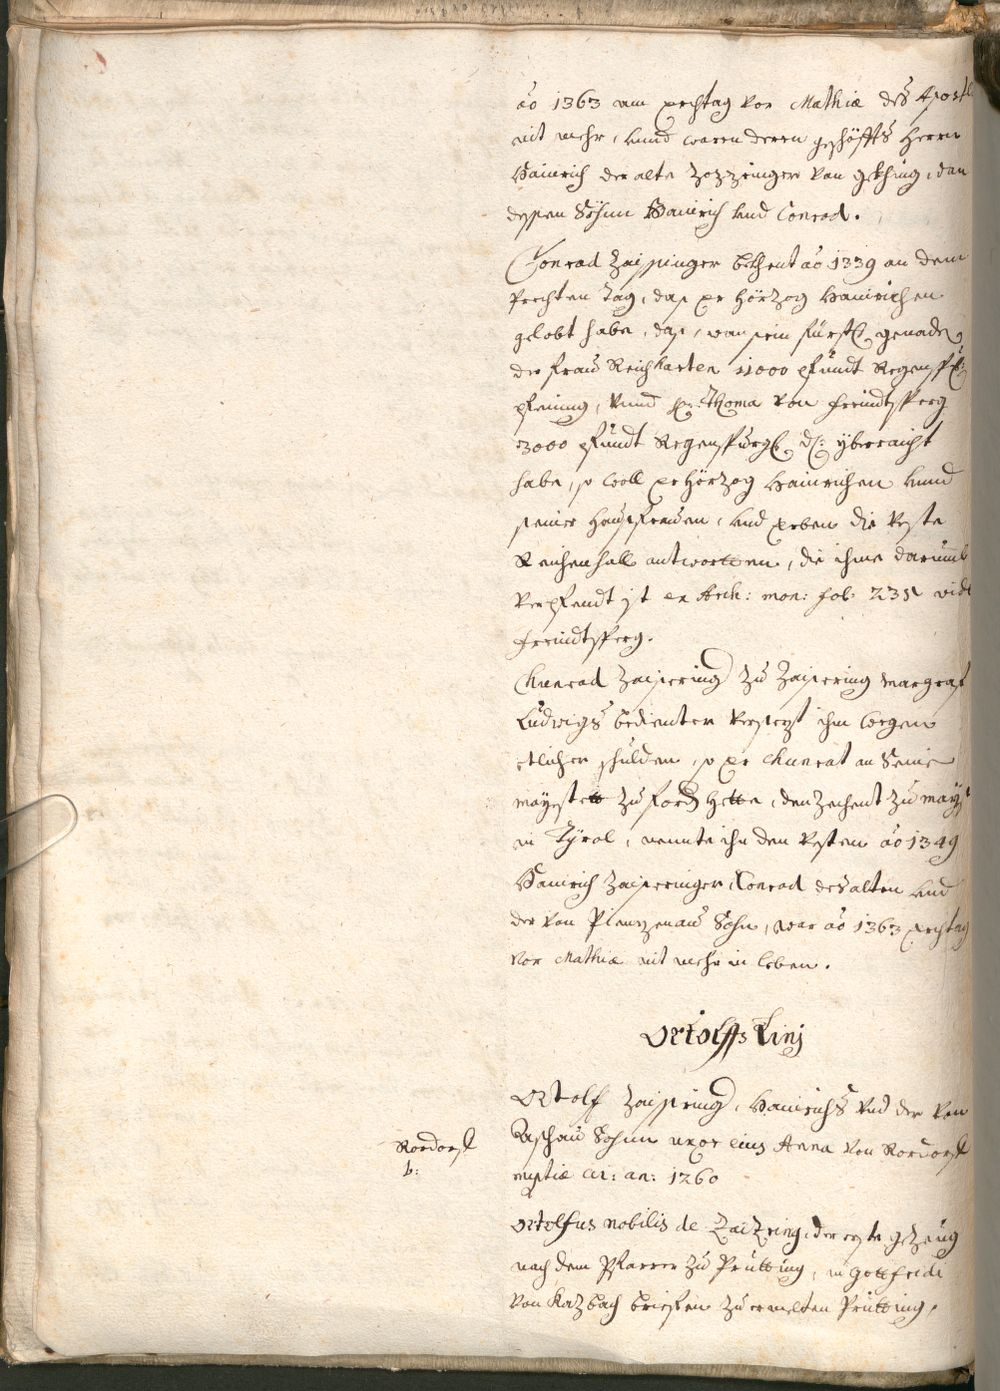 ao 1363 am erchtag vor Mathiæ des Apostl
nit mehr, unnd waren deren geschöffts Herrn
Hainrich der alte Zozzringer von gekhing, dan
dessen Söhnn Hainrich und Conrad.
Conrad Zaissinger bekhent ao 1339 an dem
Prechten Tag, das er Hörzog Hainrichen
gelobt habe, das, wan sein fürstl. genaden
der frau Reichkarten 11000 Pfundt Regenspl:
pfening, unnd H: Thoma von freindtsperg
3000 Pfundt Regenspurgl. d: yberraicht
habe, so woll er Hörzog Hainrichen unnd
seiner Hausfrauen, und erben die Veste
Reichenhall antwortten, die ihme darumb
verpfendt ist ex Arch: mon: fol: 231 vide
freindtsperg.
Chunrad Zaissering zu Zaissering Margraf
Ludwigs bedienter versezt ihm wegen
etlicher schulden, so er Chunrat an Seine
mayestett zu fordern hette, den Zechent zu mays
in Tyrol, nennte ihn den Vesten ao 1349
Hainrich Zaisseringer, Conrad des alten und
der von Pienzenau Sohn, war ao 1363 erchtag
vor Mathiæ nit mehr in leben.
Ortolffs Linj
Ortolf Zaissring, Hainrichs und der von
Aschau Sohnn uxor eius Anna von Rordorf
Rordorf
b:
nuptiæ ci: an: 1260
Ortolfus nobilis de Zaizring, der erste gezeug
nach dem Pfarrer zu Prutting, in gottfridi
von Kazbach brieffen zu ermelten Prutting,